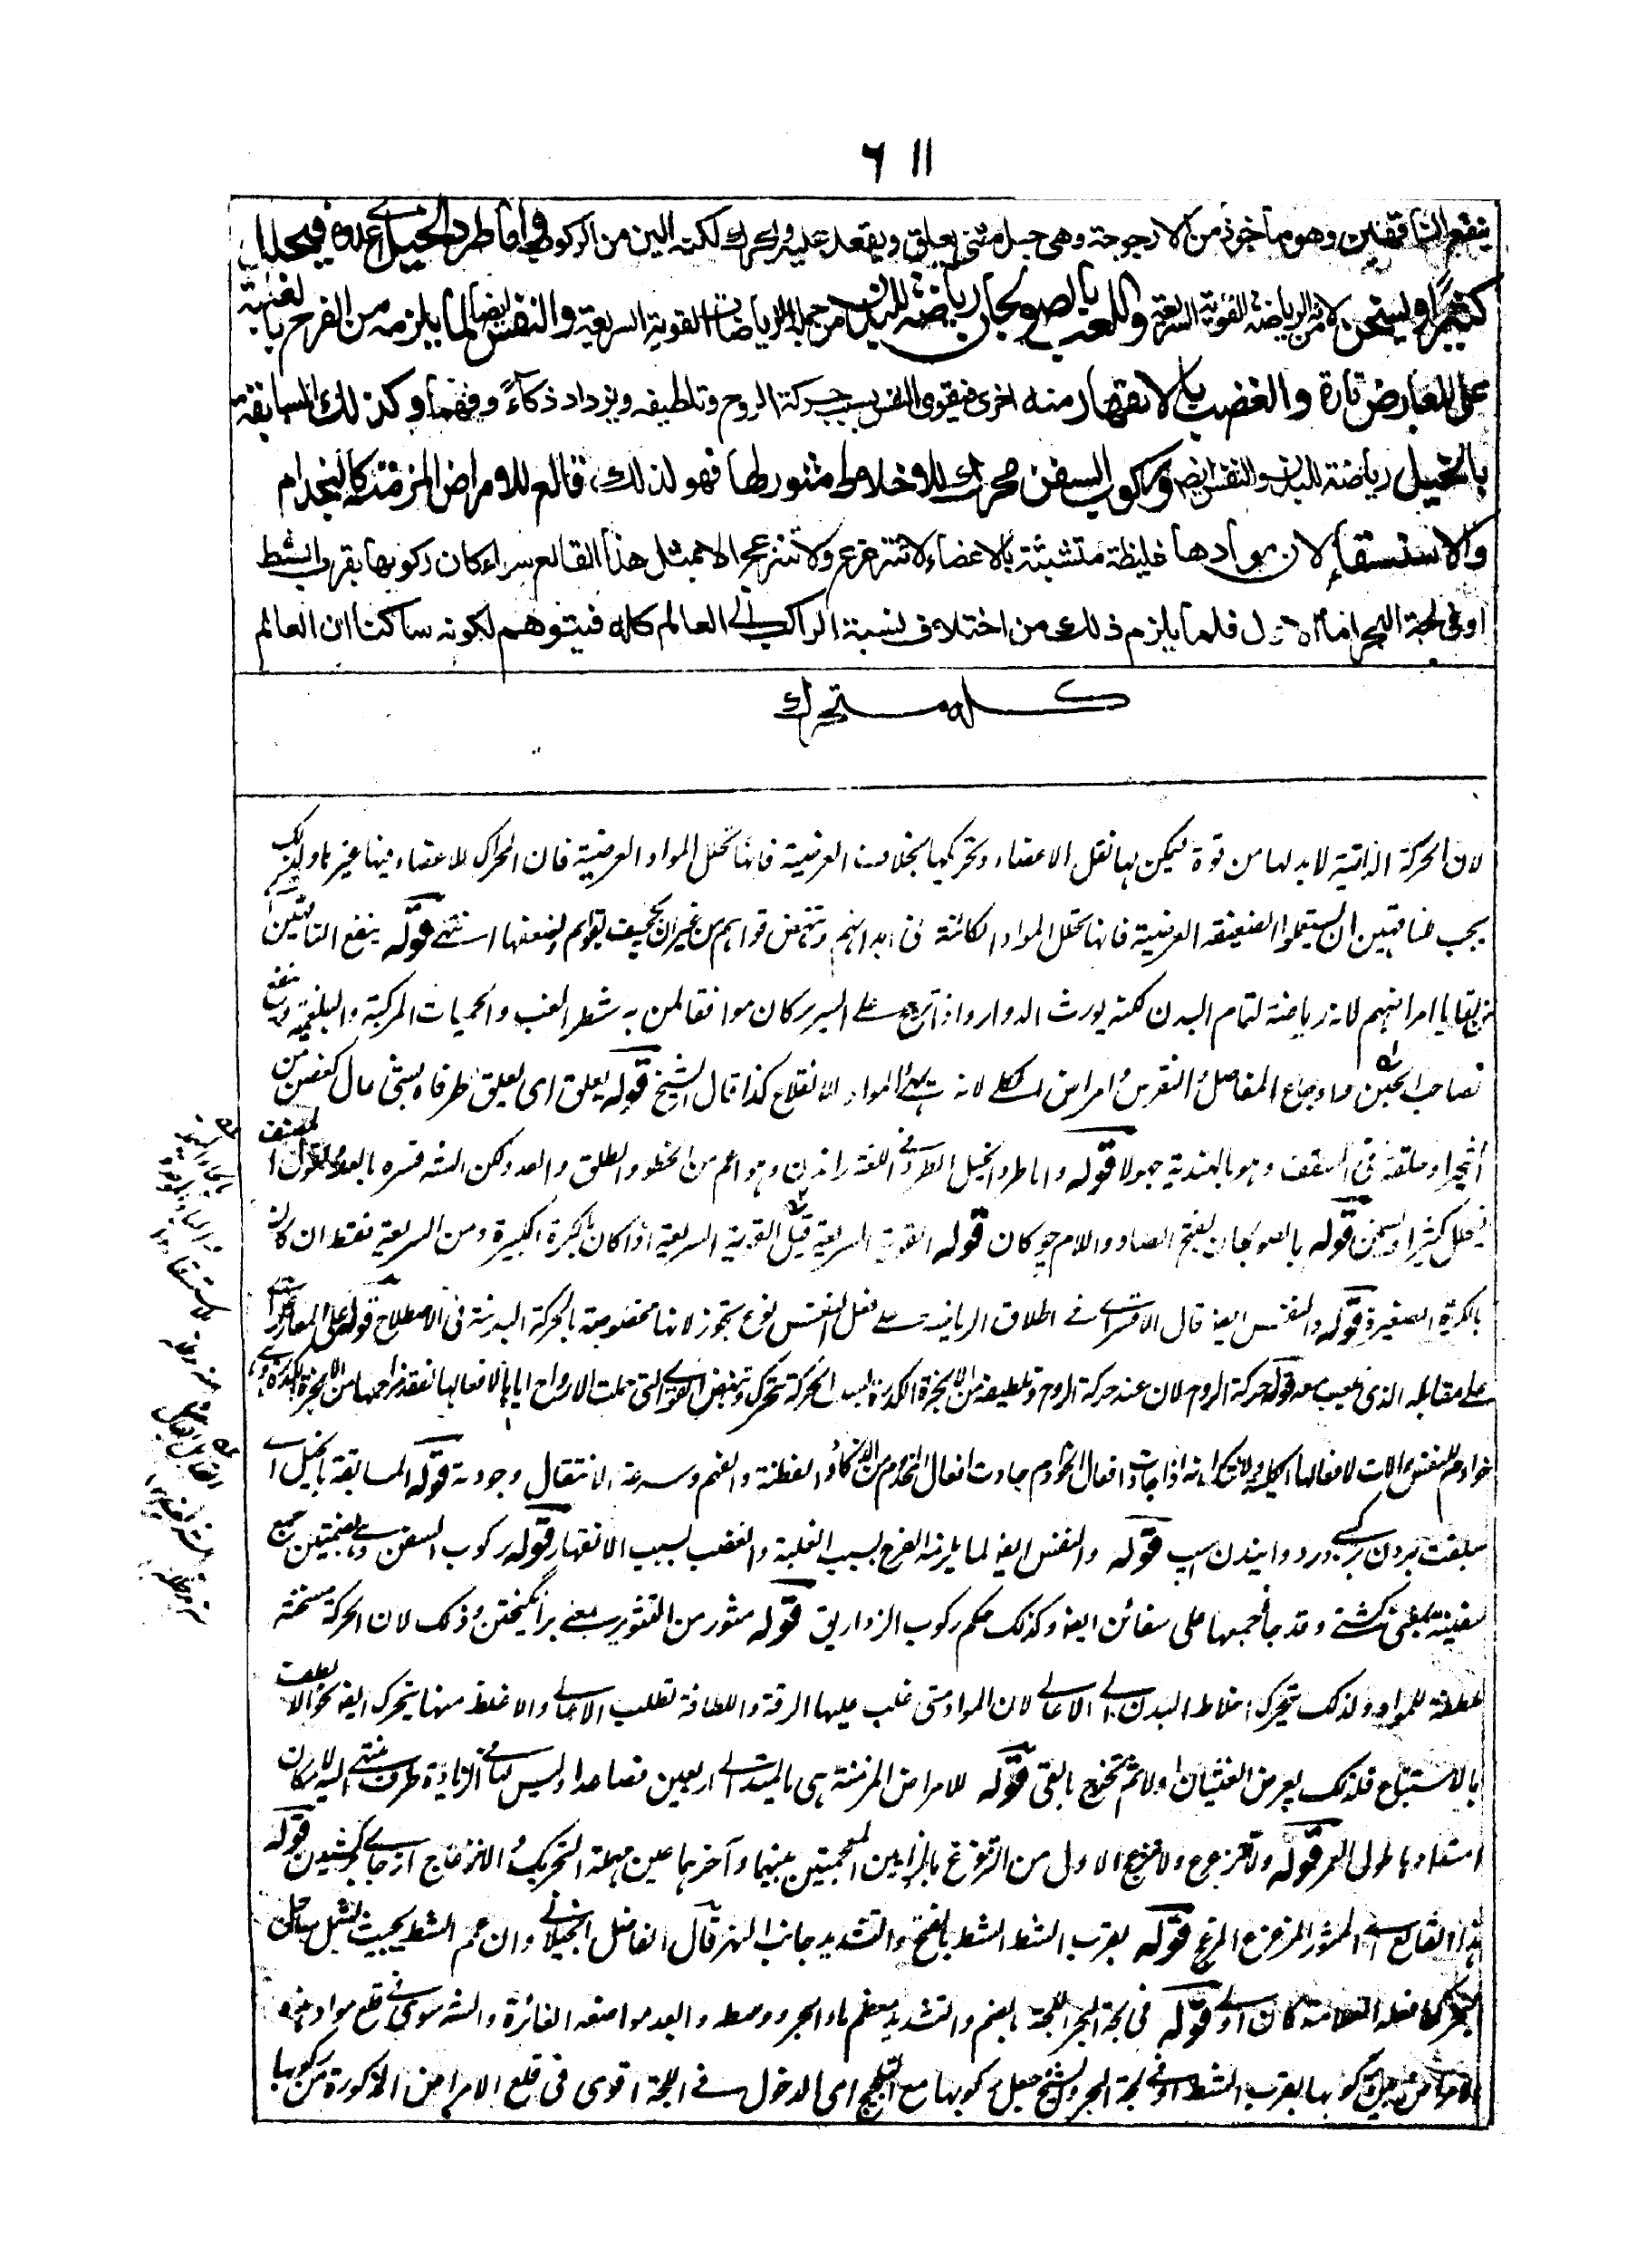 ٦١١
ينفع الناقهين وهو مأخوذ من الارجوحة وهى حبل مثنى يعلق ويقعد عليه ويحرك لكنه الين من الركوب واما طرد الخيل عدوه فيحلل
كثيرا ويسخن لانه من الرياضة القوية السريعة واللعب بالصولجان رياضة للبدن من جملة الرياضات القوية السريعة والنفس ايضا لما يلزمه من الفرح بالغلبة
على المعارض تارة والغضب بالانقهار منه اخرى فيقوى النفس بسبب حركة الروح وتلطيفه ويزداد ذكاءً وفهما وكذلك المسابقة
بالخيل رياضة للبدن والنفس ايضا وركوب السفن محرك للاخلاط مثور لها فهو لذلك قالع للامراض المزمنة كالجذام
والاستسقاء لان موادها غليظة متشبثة بالاعضاء لا تتزعزع ولا تنزعج الا بمثل هذا القالع سواء كان ركوبها بقرب الشط
او فى لجة البحر اما الاول فلما يلزم ذلك من اختلاف نسبة الراكب الى العالم كله فيتوهم لكونه ساكنا ان العالم
كله متحرك
لان الحركة الذاتية لا بد لها من قوة يمكن بها نقل الاعضاء وتحريكها بخلاف العرضية فانها تحلل المواد العرضية فان المحرك للاعضاء فيها غيرها ولذلك
يجب للناقهين ان يستعملوا الضعيفة العرضية فانها تحلل المواد الكائنة فى ابدانهم وتنهض قواهم من غير ان يحيف بقواهم ويضعفها انتهى قوله ينفع الناقهين
من بقايا امراضهم لانه رياضة لتمام البدن لكنه يورث الدوار واذا ترجح على السرير كان موافقا لمن به شطر الغب والحميات المركبة والبلغمية وينفع
لصاحب الحبن واوجاع المفاصل والنقرس وامراض الكلى لانه يهيئ المواد الا نقلاع كذا قال الشيخ قوله يعلق اى يعلق طرفاه بشئ عال كغصن من
اشجار او حلقة فى السقف وهو بالهندية جهولا قوله واما طرد الخيل الطرد فى اللغة راندن وهو اعم من الخطو والطلق والعدو لكن الشه فسره بالعدو لقول المصنف
فيحلل كثيرا ويسخن قوله بالصولجان بفتح الصاد واللام چوكان قوله القوية السريعة قيل القوية السريعة اذا كان بالكرة الكبيرة ومن السريعة فقط ان كان
بالكرة الصغيرة قوله والنفس ايضا قال الاقسرائى فى اطلاق الرياضة على نقل النفس نوع تجوز لانها مخصوصة بالحركة البدنية فى الاصطلاح قوله على المعارض
على مقابله الذى يلعب معه قوله حركة الروح لان عند حركة الروح وتلطيفه من الابخرة الكدرة بسبب الحركة تتحرك وتنهض القوى التى حملت الارواح اياها لافعالها
خوادم للنفس والات لافعالها اذا جادت افعال الخوادم جادت افعال المخدوم من الذكاء والفطنة والفهم وسرعة الانتقال وجودته قوله المسابقة بالخيل اى
سبقت بردن بر كسى در دوانيدن اسپ قوله والنفس ايضا لما يلزمه الفرح بسبب الغلبة والغضب بسبب الانقهار قوله ركوب السفن بضمتين جمع
سفينة بمعنى كشتى وقد جاء جمعها على سفائن ايضا وكذلك حكم ركوب الزواريق قوله مثور من التثوير بمعنى برانگيختن وذلك لان الحركة مسخنة
ملطفة للمواد ولذلك يتحرك اخلاط البدن الى الاعالى لان المواد متى غلب عليها الرقة واللطافة تطلب الاعالى والاغلظ منها يتحرك ايضا نحو الالطف
بالاستتباع فلذلك يعرض الغثيان اولا ثم تخرج بالقئ قوله للامراض المزمنة هى بالميتد الى اربعين فصاعدا وليس فى الزيادة طرف ينتهى اليه لامكان
امتدادها طول العمر قوله ولا تتزعزع ولا تنزعج الاول من التزعزع بالزايين المعجمتين بينهما وآخرهما عين مهملة التحريك والانزعاج از جاى بركشيدن قوله
هذا القالع اى المثور المزعزع المزعج قوله بقرب الشط الشط بالفتح والتشديد جانب النهر قال الفاضل الجيلانى وان عمم الشط بحيث يشمل ساحل
البحر كما فعله العلامة كان اولى قوله فى لجة البحر اللجة بالضم والتشديد معظم ماء البحر ووسطه وابعد مواضعه الغائرة والشه سوى فى قلع مواد هذه
الامراض بين ركوبها بقرب الشط او فى لجة البحر والشيخ جعل ركوبها مع التلجيج اى الدخول فى اللجة اقوى فى قلع الامراض المذكورة من ركوبها